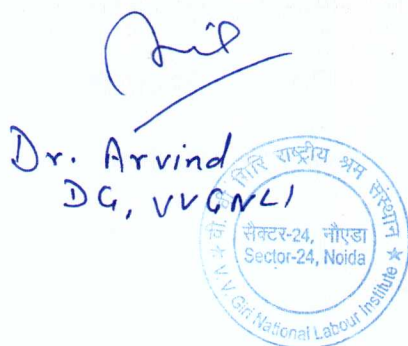 Dr. Arvind
DG, VVGNLI
वी. वी. गिरि राष्ट्रीय श्रम संस्थान
सैक्टर-24, नौएडा
Sector-24, Noida
★ V V Giri National Labour Institute ★